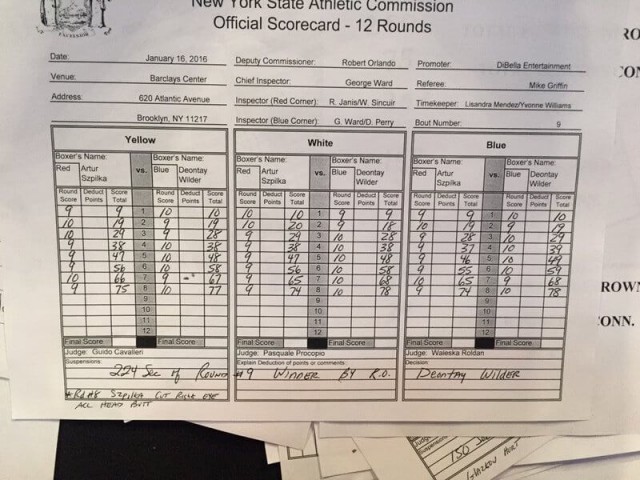 New York State Athletic Commission
Official Scorecard - 12 Rounds
EXCELSIOR
Date: January 16, 2016 Deputy Commissioner: Robert Orlando Promoter: DiBella Entertainment
Venue: Barclays Center Chief Inspector: George Ward Referee: Mike Griffin
Address: 620 Atlantic Avenue Inspector (Red Corner): R. Janis/W. Sincuir Timekeeper: Lisandra Mendez/Yvonne Williams
Brooklyn, NY 11217 Inspector (Blue Corner): G. Ward/D. Perry Bout Number: 9
Yellow White Blue
Boxer's Name: vs. Boxer's Name: Boxer's Name: vs. Boxer's Name: Boxer's Name: vs. Boxer's Name:
Red Artur Blue Deontay Red Artur Blue Deontay Red Artur Blue Deontay
Szpilka Wilder Szpilka Wilder Szpilka Wilder
Round Deduct Score Round Deduct Score Round Deduct Score Round Deduct Score Round Deduct Score Round Deduct Score
Score Points Total Score Points Total Score Points Total Score Points Total Score Points Total Score Points Total
9 9 1 10 10 10 10 1 9 9 9 9 1 10 10
10 19 2 9 19 10 20 2 9 18 10 19 2 9 19
10 29 3 9 28 9 29 3 10 28 9 28 3 10 29
9 38 4 10 38 9 38 4 10 38 9 37 4 10 39
9 47 5 10 48 9 47 5 10 48 9 46 5 10 49
9 56 6 10 58 9 56 6 10 58 9 55 6 10 59
10 66 7 9 67 9 65 7 10 68 10 65 7 9 68
9 75 8 10 77 9 74 8 10 78 9 74 8 10 78
9 9 9
10 10 10
11 11 11
12 12 12
Final Score Final Score Final Score Final Score Final Score Final Score
Judge: Guido Cavalleri Judge: Pasquale Procopio Judge: Waleska Roldan
Suspensions: Explain Deduction of points or comments: Decision:
2:24 Sec of Round #9 Winner By K.O. Deontay Wilder
*Rd#8 Szpilka Cut Right eye
Acc Head Butt
RO
CON
ROWN
CONN.
Judge:
Suspensions:
150